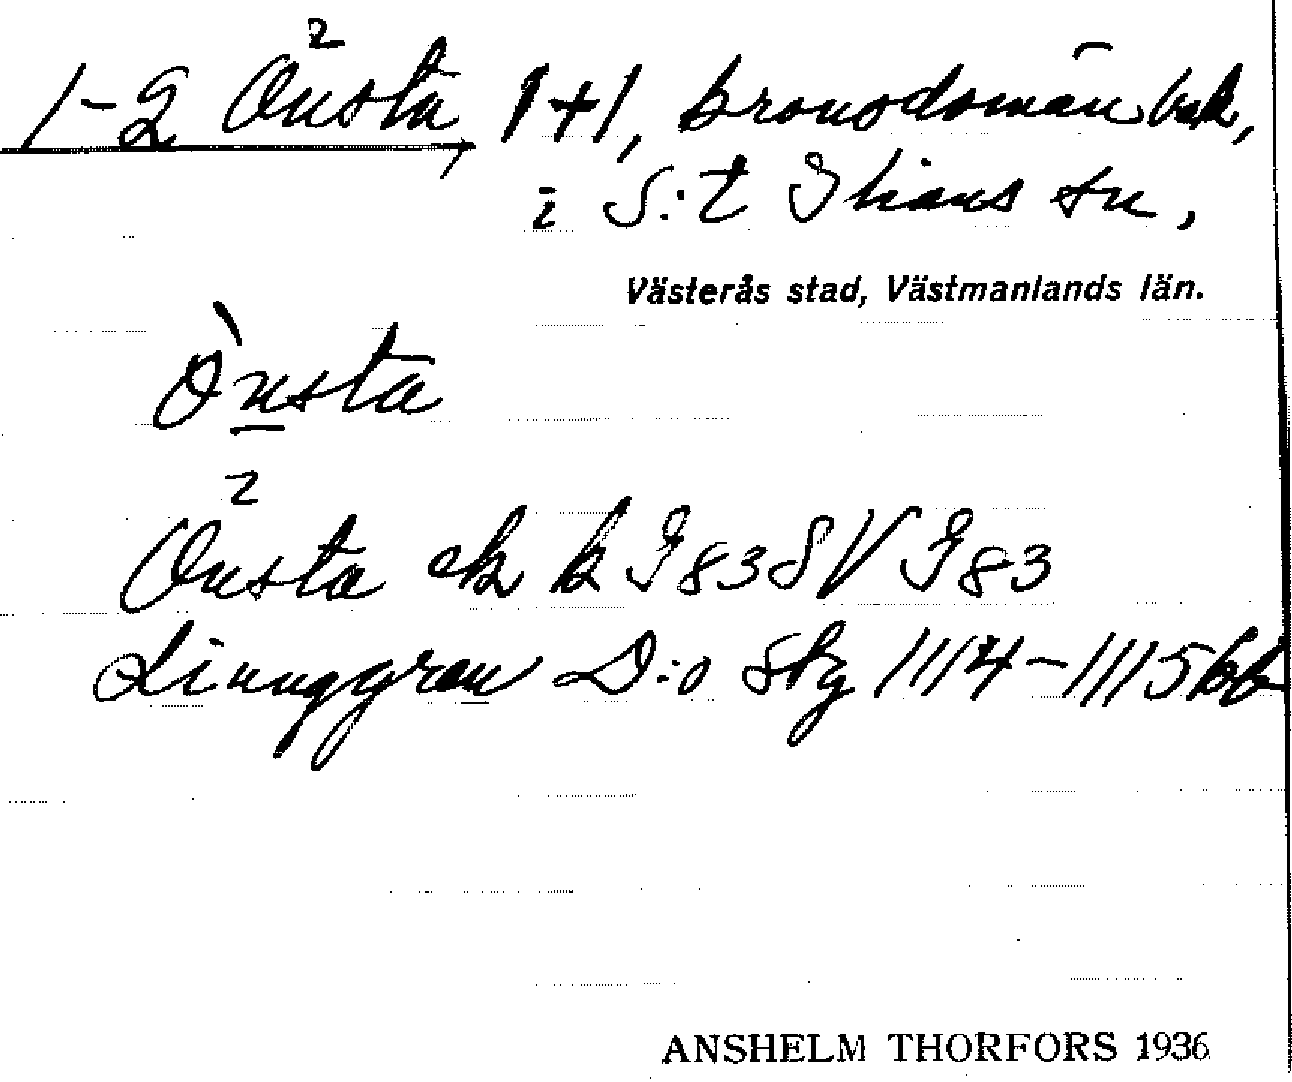 2
1-2 Önsta, 1+1, kronodomän bek,
i S:t Ilians sn,
Västerås stad, Västmanlands län.
Önsta
2
Önsta ek k I 83 SV I 83
Linnggren D:o Sky 1114-1115 bb
ANSHELM THORFORS 1936